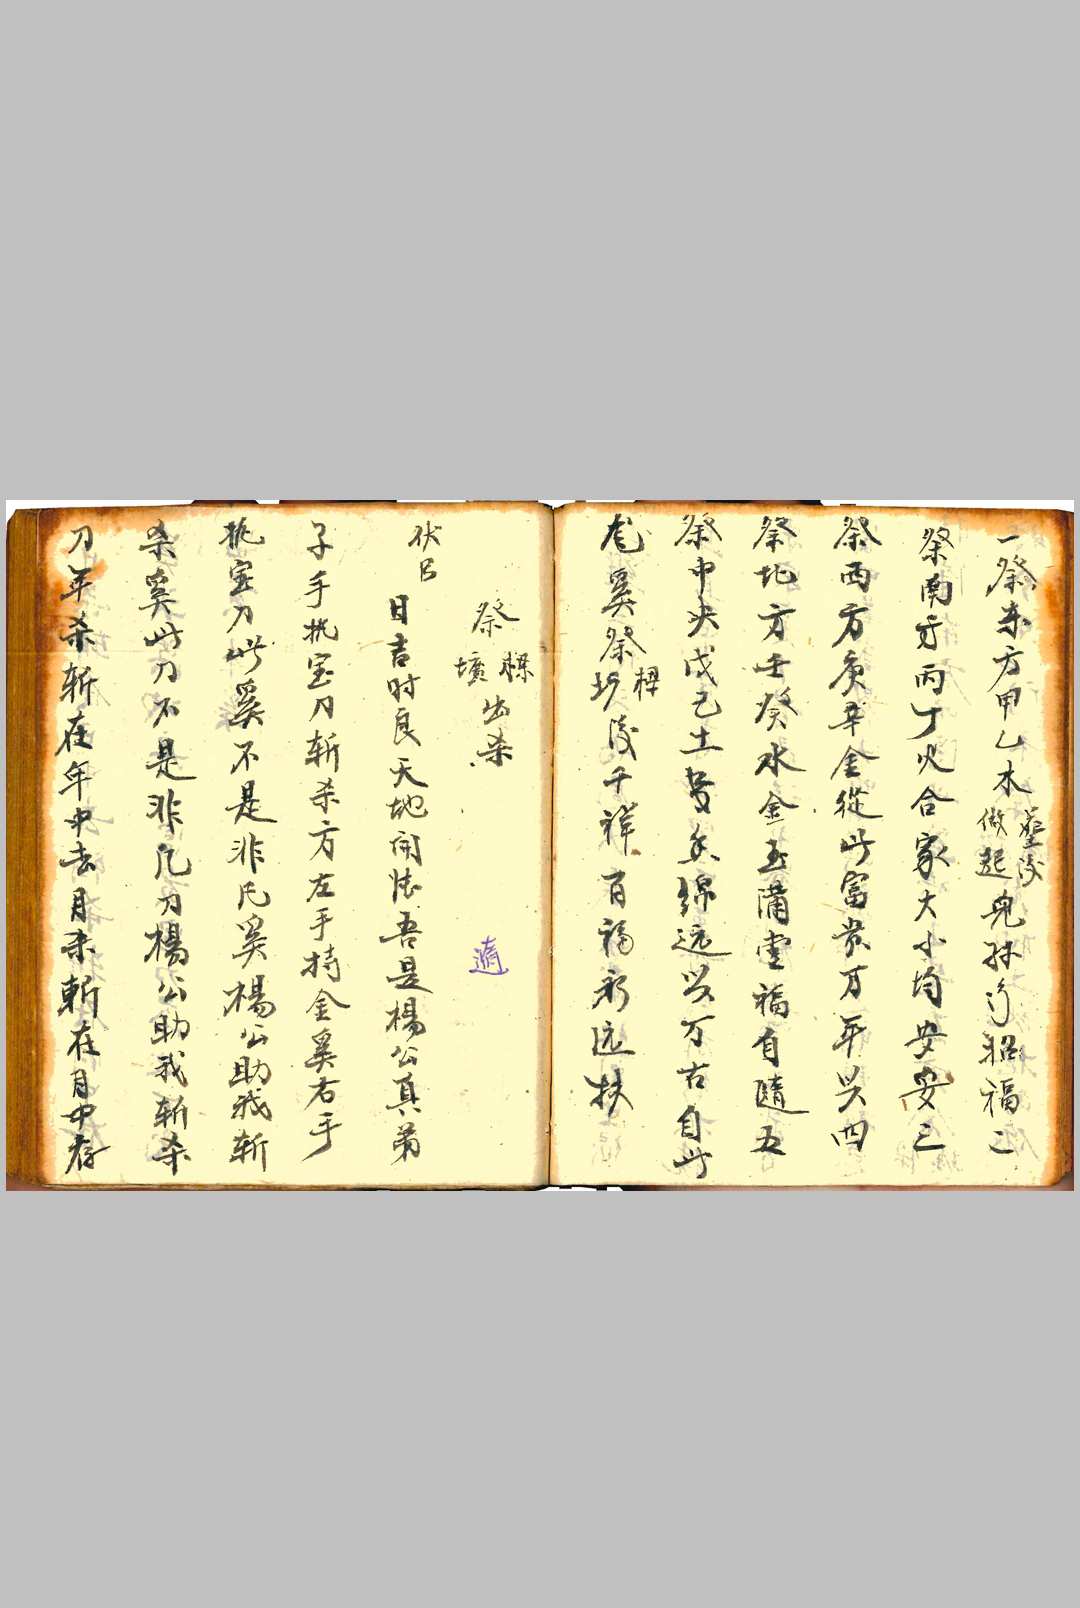 一祭东方甲乙木 做起 葬后 兒孙 福二
祭南方丙丁火合家大小均安安三
祭西方庚辛金從此富贵万年兴四
祭北方壬癸水金玉滿堂福自隨五
祭中央戊己土 綿远兴万古自此
奚祭 樑 后千祥百福永远扶
祭 樑 壙 出杀
伏以
日吉时良天地開 吾是楊公真弟
子手执宝刀斩杀方左手持金奚右手
执宝刀此奚不是非凡奚楊公助我斩
杀奚此刀不是非凡刀楊公助我斩杀
刀年杀斩在年中去月杀斩在月中存